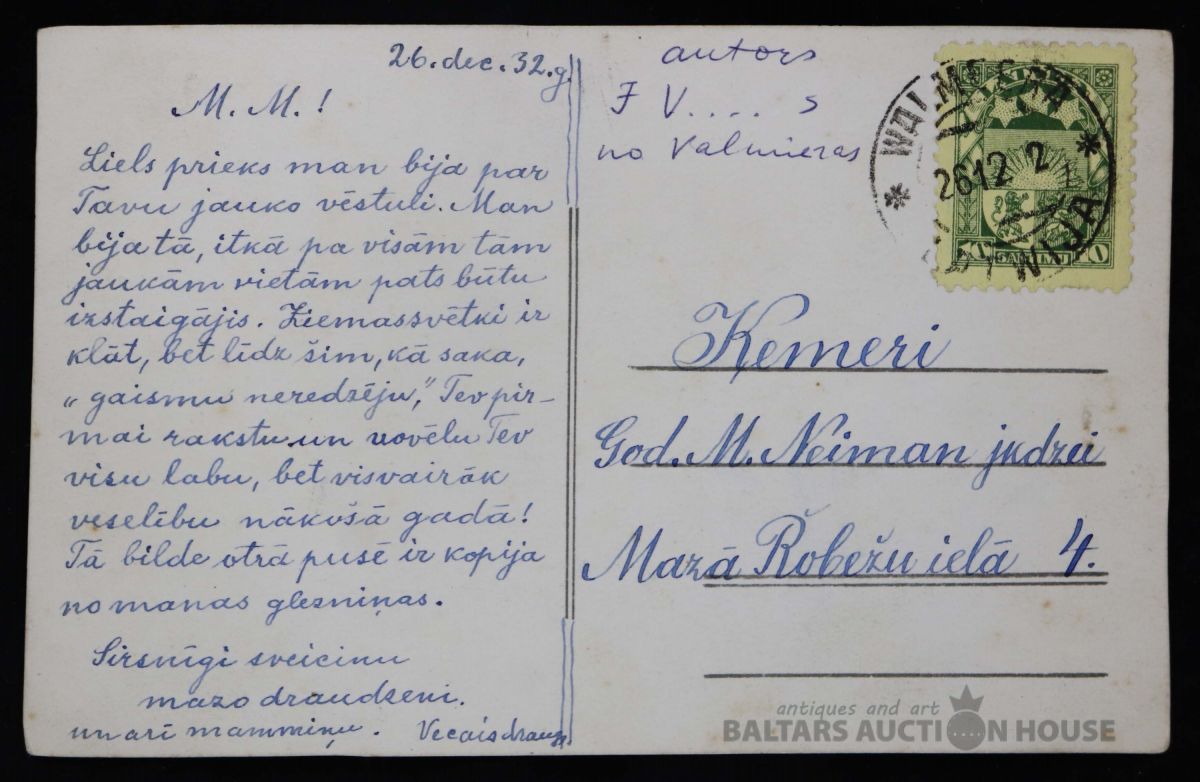 26. dec. 32. g.
M. M. !
Liels prieks man bija par
Tavu jauko vēstuli. Man
bija tā, itkā pa visām tām
jaukām vietām pats būtu
izstaigājis. Ziemassvētki ir
klāt, bet līdz šim, kā saka,
„gaismu neredzēju," Tev pir-
mai rakstu un novēlu Tev
visu labu, bet visvairāk
veselību nākošā gadā!
Tā bilde otrā pusē ir kopija
no manas glezniņas.
Sirsnīgi sveicinu
mazo draudzeni.
un arī mammiņu. Vecais draugs
autors
J V.... s
no Valmieras
WALMEERA
26 12 2
LATWIJA
LATVIJA
10 SANTIMU 10
Ķemeri
God. M. Neiman jkdzei
Mazā Robežu ielā 4.
antiques and art
BALTARS AUCTION HOUSE